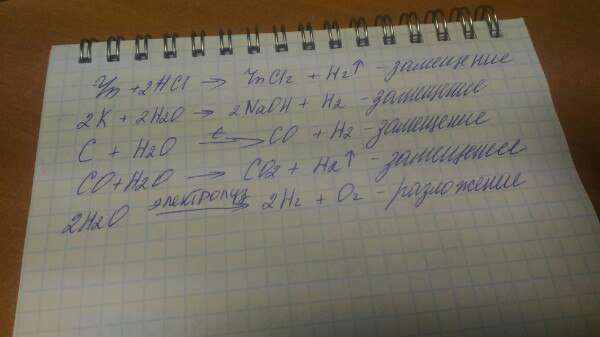 Zn + 2HCl → ZnCl2 + H2↑ - замещение
2K + 2H2O → 2NaOH + H2 - замещение
C + H2O t→ CO + H2 - замещение
CO + H2O → CO2 + H2↑ - замещение
2H2O электролиз→ 2H2 + O2 - разложение